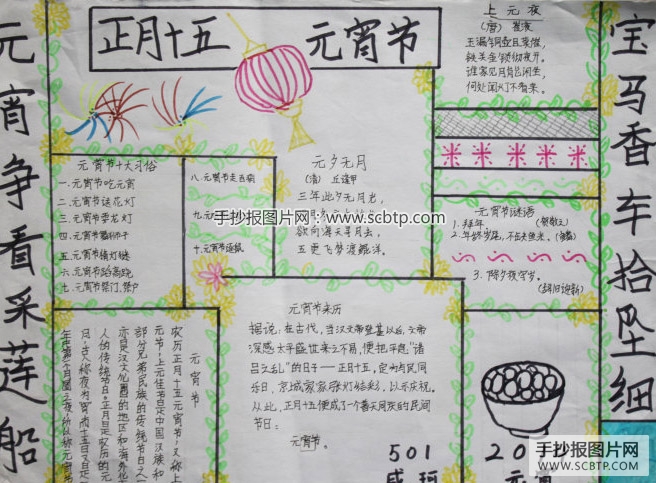 正月十五 元宵节
元宵争看采莲船
宝马香车拾坠细
上元夜
(唐) 崔液
玉漏铜壶且莫催,
铁关金锁彻夜开。
谁家见月能闲坐,
何处闻灯不看来。
元宵节十大习俗
一.元宵节吃元宵
二.元宵节送花灯
三.元宵节耍龙灯
四.元宵节
五.元宵节猜灯谜
六.元宵节踩高跷
七.元宵节祭门、祭户
八.元宵节走百病
九.元
十.元宵节逐鼠
元夕无月
(清) 丘逢甲
三年此夕无月光,
欲向海天寻月去,
五更飞梦渡鲲洋。
手抄报图片网:www.scbtp.com
元宵节谜语
1.拜年。 (贺敬之)
2.年终岁尾,不缺鱼米。
3.除夕夜守岁。
(辞旧迎新)
元宵节来历
据说,在古代,当汉文帝登基以后,文帝
深感太平盛世来之不易,便把平息"诸
吕之乱"的日子——正月十五,定为与民同
乐日,京城家家张灯结彩,以示庆祝。
从此,正月十五便成了一个普天同庆的民间
节日:
元宵节。
元宵节
农历正月十五元宵节,又称上
元节,上元佳节是中国汉族和
部分兄弟民族的传统节日之一
亦是汉文化圈的地区和海外华
人的传统节日。正月是农历的元
月,古人称夜为宵而十五日又是一
年中第一个月圆之夜,所以称元宵节
501
20
元宵
手抄报图片网
WWW.SCBTP.COM